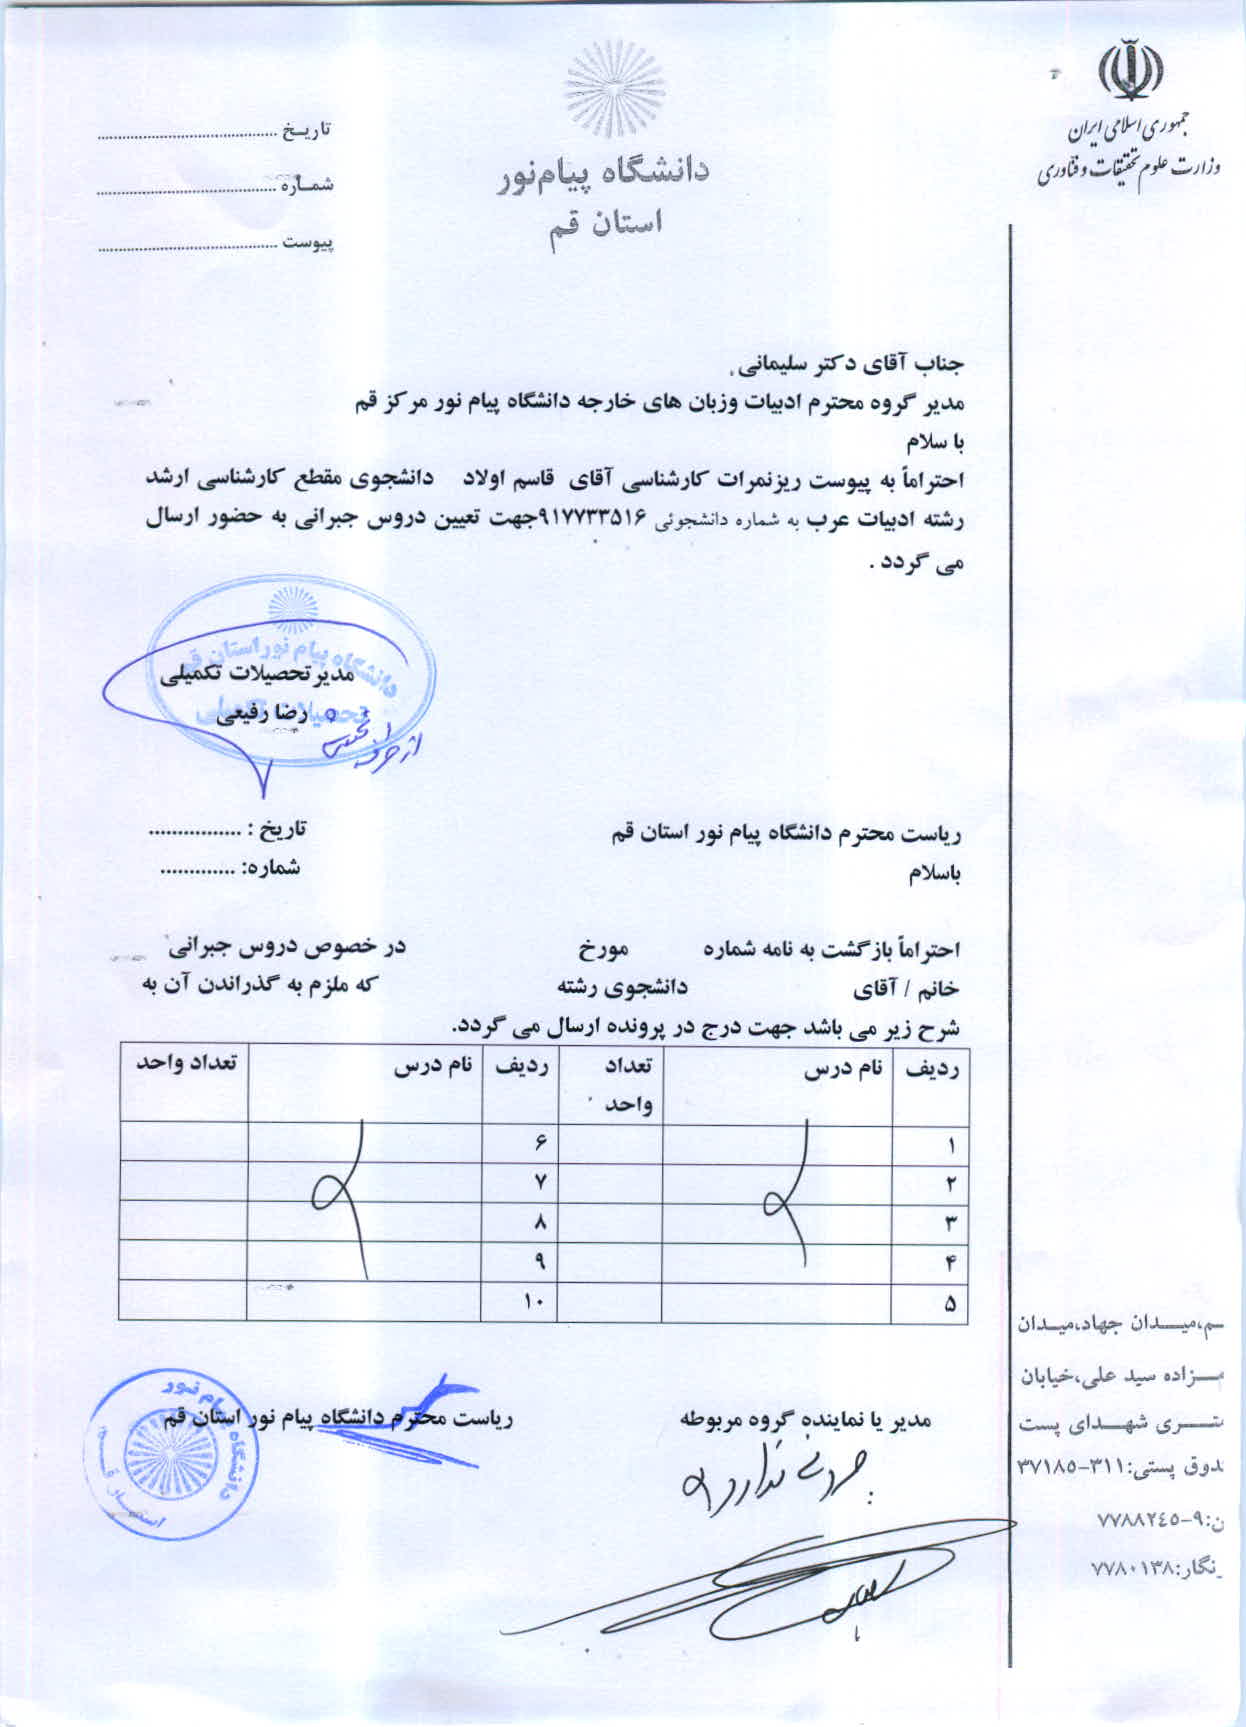 جمهوری اسلامی ایران
وزارت علوم تحقیقات و فناوری
دانشگاه پیام‌نور
استان قم
تاریـخ ............................................
شمـاره ............................................
پیوست ............................................
جناب آقای دکتر سلیمانی
مدیر گروه محترم ادبیات وزبان های خارجه دانشگاه پیام نور مرکز قم
با سلام
احتراماً به پیوست ریزنمرات کارشناسی آقای قاسم اولاد دانشجوی مقطع کارشناسی ارشد
رشته ادبیات عرب به شماره دانشجوئی ۹۱۷۷۳۳۵۱۶جهت تعیین دروس جبرانی به حضور ارسال
می گردد .
دانشگاه پیام نور استان قم
تحصیلات تکمیلی
مدیر تحصیلات تکمیلی
رضا رفیعی
از طرف
ریاست محترم دانشگاه پیام نور استان قم
باسلام
تاریخ : ................
شماره: .............
احتراماً بازگشت به نامه شماره مورخ در خصوص دروس جبرانی
خانم / آقای دانشجوی رشته که ملزم به گذراندن آن به
شرح زیر می باشد جهت درج در پرونده ارسال می گردد.
ردیف نام درس تعداد واحد ردیف نام درس تعداد واحد
۱ ۶
۲ ۷
۳ ۸
۴ ۹
۵ ۱۰
مدیر یا نماینده گروه مربوطه
ریاست محترم دانشگاه پیام نور استان قم
دانشگاه پیام نور
ندارد
ـم،میـــدان جهاد،میـدان
ـــزاده سید علی،خیابان
ـتــــری شهــدای پست
ـدوق پستی:۳۱۱-۳۷۱۸۵
ـن:۹-۷۷۸۸۲٤۵
ـنگار:۷۷۸۰۱۳۸